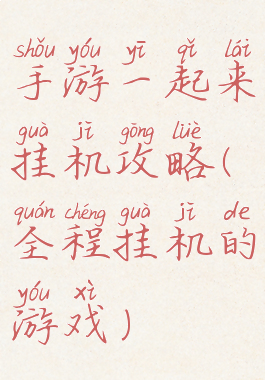 shǒu yóu yī qǐ lái
手游一起来
guà jī gōng lüè
挂机攻略(
quán chéng guà jī de
全程挂机的
yóu xì
游戏)